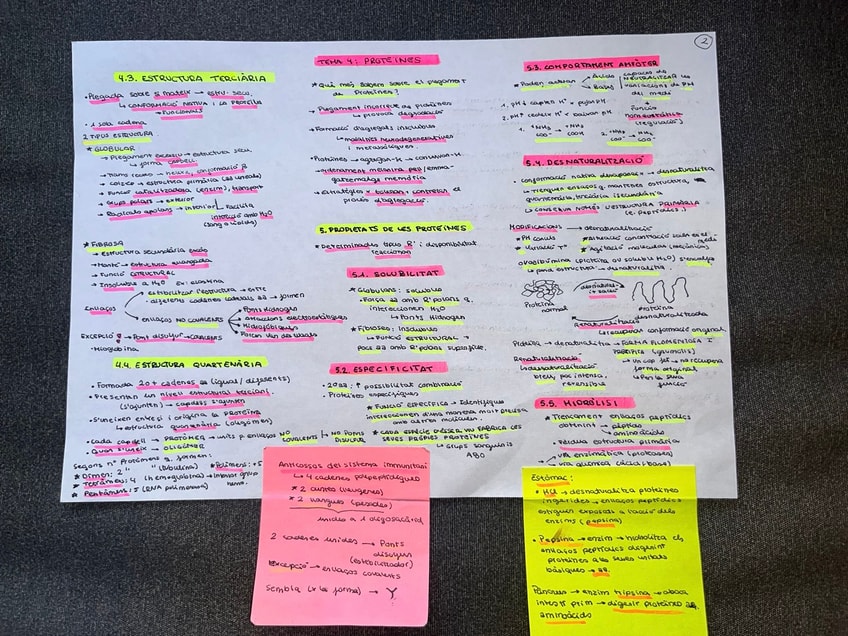 2
4.3. ESTRUCTURA TERCIÀRIA
• Plegada sobre si mateix → estru. secu.
↳ CONFORMACIÓ NATIVA : LA PROTEÏNA
FUNCIONALS
• 1 sola cadena
2 TIPUS ESTRUCTURA
* GLOBULAR
→ Plegament → estructures secu
↳ forma CABDELL
→ estructura primària
→ Funció catalitzadora (enzim), transport
→ Grup polars → exterior
→ Radicals apolars → interior
Facilita
interacció amb H2O
(sang o líquids)
* FIBROSA
→ estructura secundària
→ estructura allargada
→ Funció ESTRUCTURAL
→ Insolubles a H2O ex: elastina
ENLLAÇOS
→ estabilitzar l'estructura → entre
diferents cadenes
→ ENLLAÇOS NO COVALENTS
Ponts hidrogen
atraccions electrostàtiques
Hidrofòbiques
Forces Van der Waals
EXCEPCIÓ: → Pont disulfur → COVALENTS
- Mioglobina
4.4. ESTRUCTURA QUATERNÀRIA
• Formada 2 o + cadenes aa (igual / diferents)
• Presenten un nivell estructural terciari
(s'ajunten) → cabdells s'ajunten
• S'uneixen entre si i origina la PROTEÏNA
↳ estructura quaternària (oligòmer)
• Cada cabdell → PROTÒMER → units x enllaços NO COVALENTS → NO PONTS DISULFUR
• Quan s'uneix → OLIGÒMER
Segons nº Protòmers q. formen:
* Dímer: 2
* Polímers: +5
* Tetràmer: 4 (hemoglobina)
* Pentàmer: 5 (RNA polimerasa)
TEMA 4: PROTEÏNES
* Què més sabem sobre el plegament
de Proteïnes?
→ Plegament incorrecte de proteïnes
↳ provoca degradació
→ Formació d'agregats insolubles
↳ malalties neurodegeneratives
i metabòliques
→ Proteïnes → agreguen-se → conserven-se
→ emmagatzematge memòria
→ Estratègies x buscar i controlar el
procés d'agregació.
5. PROPIETATS DE LES PROTEÏNES
* Determinades tipus R' i disponibilitat
reaccionar
5.1. SOLUBILITAT
* Globulars: solubles
• Força aa amb R' polars q.
interaccionen H2O
↳ Ponts Hidrogen
* Fibroses: Insolubles
↳ FUNCIÓ ESTRUCTURAL +
pocs aa amb R' polars superfície.
5.2. ESPECIFICITAT
• 20 aa: ↑ possibilitat combinació
• Proteïnes específiques
* FUNCIÓ ESPECÍFICA → Identifiquen
interaccionen d'una manera molt precisa
amb altres molècules.
* CADA ESPÈCIE O ÉSSER VIU FABRICA LES
SEVES PRÒPIES PROTEÏNES
↳ Grups sanguinis
ABO
5.3. COMPORTAMENT AMFÒTER
* Poden actuar
Àcids
Bases
capaces de
NEUTRALITZAR les
variacions de PH
del medi
Funció
homeostàtica
(regulació)
5.4. DESNATURALITZACIÓ
• conformació nativa desapareix → desnaturalitza
↳ trenquen enllaços q. mantenen estructura
quaternària, terciària i secundària
↳ CONSERVEN NOMÉS L'ESTRUCTURA PRIMÀRIA
(e. peptídics)
MODIFICACIONS → desnaturalització
* PH canvis
* Alteració concentració sals en el medi
* Variació Tª
* Agitació molècules (mecànica)
→ desnaturalitza.
Proteïna
normal
desnatural-
ització
Proteïna
desnaturalitzada
Renaturalització
↳ recuperar conformació original.
PERDUDA → desnaturalitza → FORMA FILAMENTOSA I
PRECIPITA (grumolls)
↳ un cop fet → no recupera
forma original
↳ Perd la seva
funció
Renaturalització
↳ desnaturalització
lleu, poc intensa,
reversible
5.5. HIDRÒLISI
• Trencament enllaços peptídics
obtenint → pèptids
aminoàcids
• Pèrdua estructura primària
→ via enzimàtica (proteases)
→ via química (àcids | base)
Anticossos del sistema immunitari
↳ 4 cadenes polipeptídiques
* 2 curtes (lleugeres)
* 2 llargues (pesades)
unides a 1 oligosacàrid
2 cadenes unides → Ponts
disulfur
(estabilitzador)
Excepció → enllaços covalents
Sembla (x la forma) → Y
Estómac:
• HCl → desnaturalitza proteïnes
ingerides → enllaços peptídics
estiguin exposats a l'acció dels
enzims (pepsina)
• Pepsina → enzim → hidrolitza els
enllaços peptídics desfent
proteïnes a les seves unitats
bàsiques → aa.
Pàncreas → enzim tripsina → aboca
intestí prim → digerir proteïnes aa.
aminoàcids